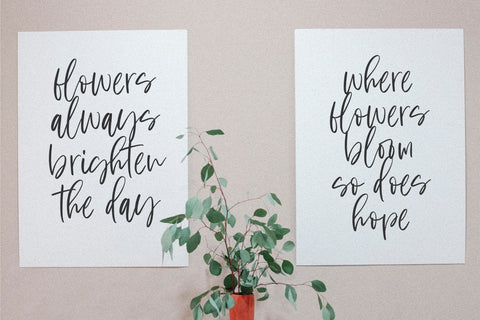 flowers
always
brighten
the day
where
flowers
bloom
so does
hope